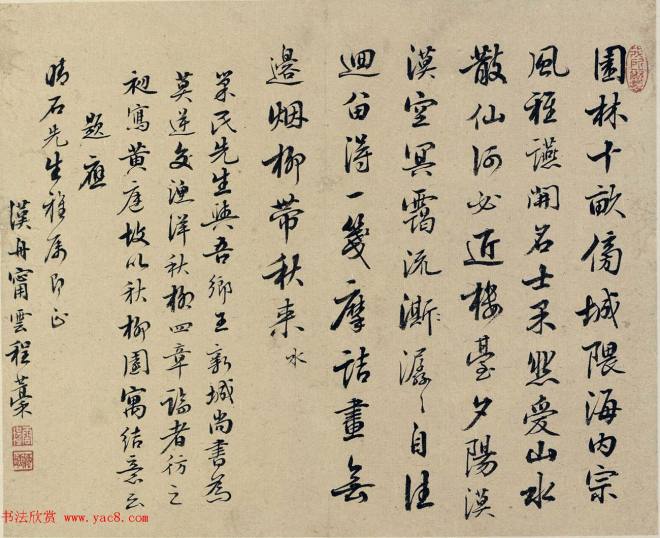 園林十畝傍城隈海内宗
風雅讌開名士果然愛山水
散仙何必近樓臺夕陽漠
漠空冥靄流澌潺〻自往
迴留得一箋摩詰畫無
邊烟柳帶秋来
水
單民先生與吾鄉王新城尚書為
莫逆交漁洋秋柳四章論者彷之
初寫黄庭故以秋柳園寓結意云
題應
晴石先生雅屬即正
漢舟甯雲程藁
书法欣赏 www.yac8.com